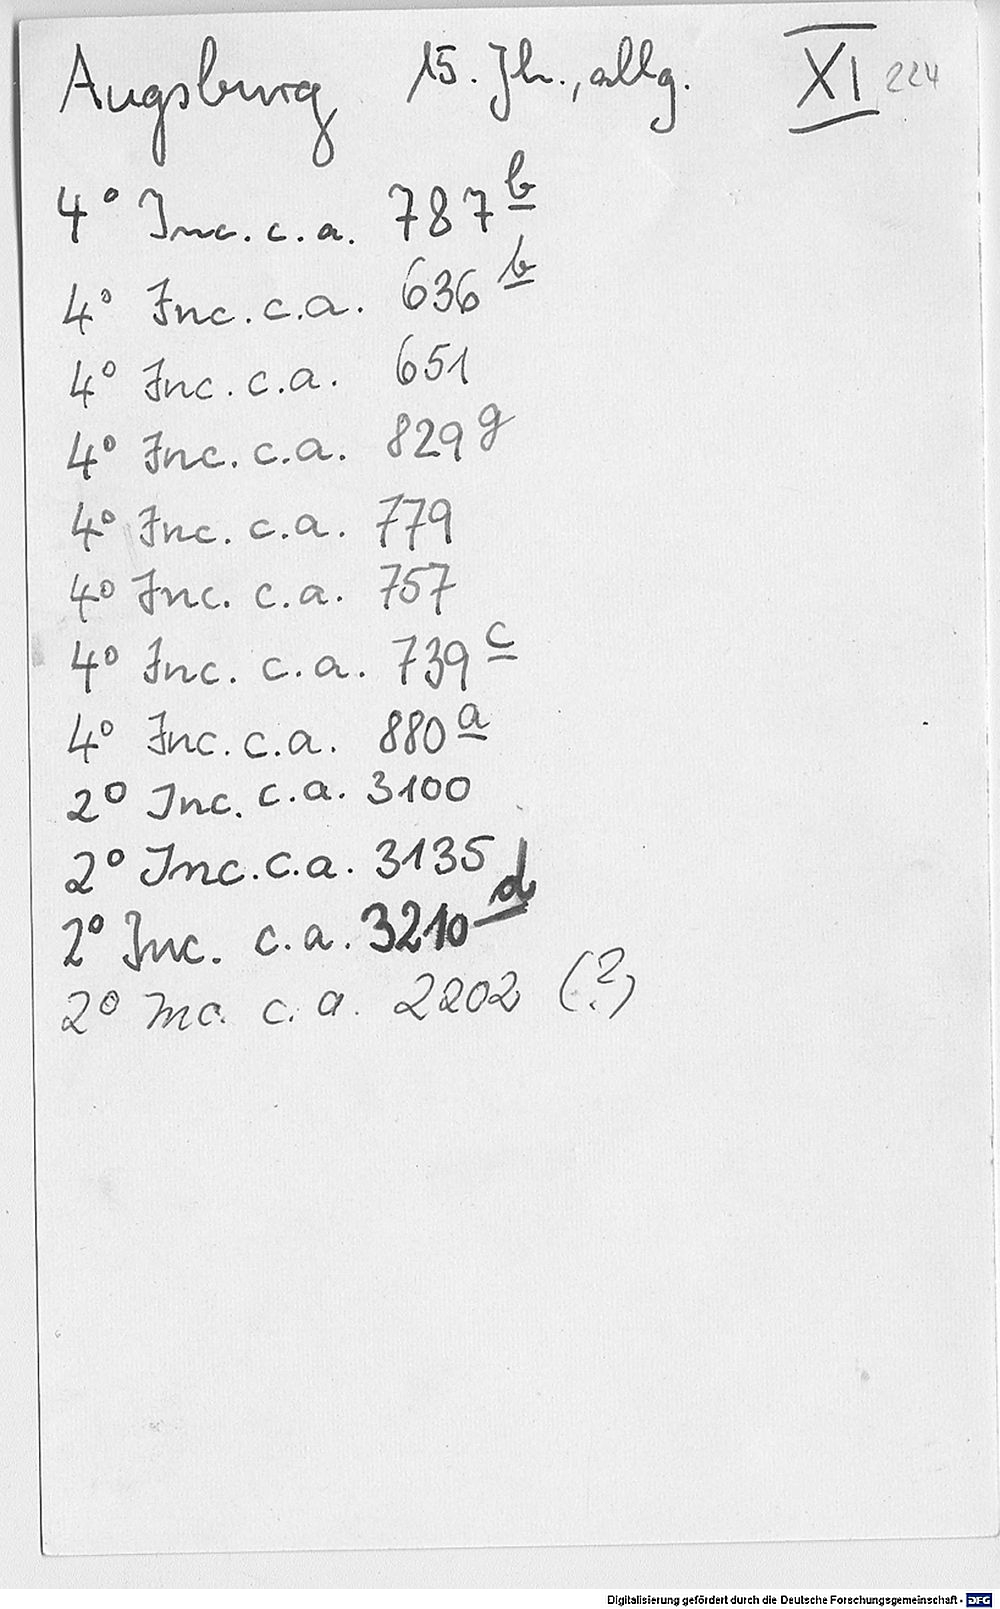 Augsburg 15. Jh., allg. XI 224
4° Inc. c. a. 787 b
4° Inc. c. a. 636 b
4° Inc. c. a. 651
4° Inc. c. a. 829 g
4° Inc. c. a. 779
4° Inc. c. a. 757
4° Inc. c. a. 739 c
4° Inc. c. a. 880 a
2° Inc. c. a. 3100
2° Inc. c. a. 3135
2° Inc. c. a. 3210 d
2° Inc. c. a. 2202 (?)
Digitalisierung gefördert durch die Deutsche Forschungsgemeinschaft - DFG